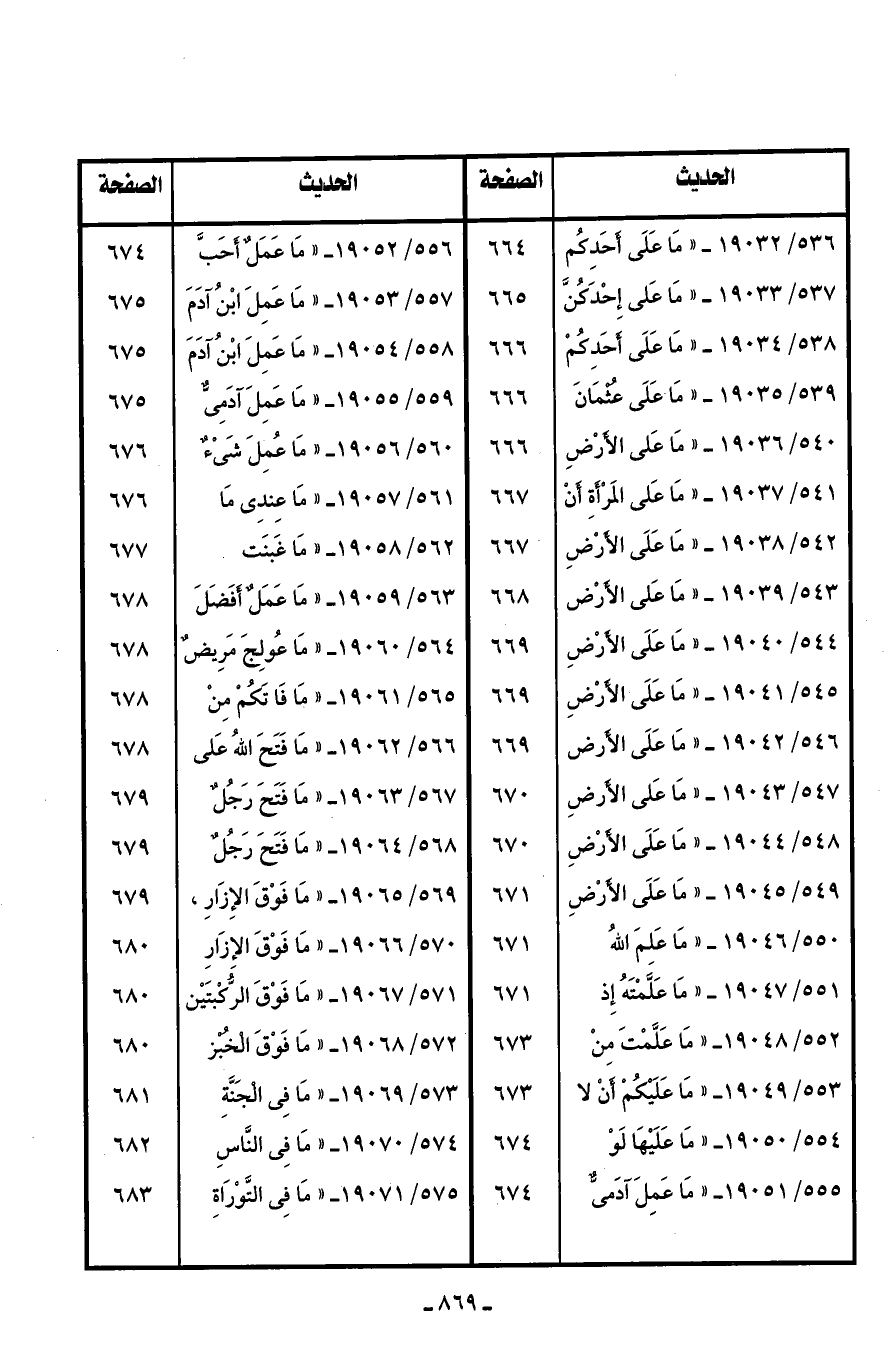 الحديث الصفحة الحديث الصفحة
٥٣٦/ ١٩٠٣٢ ـ « مَا عَلَى أَحَدِكُم ٦٦٤ ٥٥٦/ ١٩٠٥٢ـ « مَا عَمَلٌ أَحَبَّ ٦٧٤
٥٣٧/ ١٩٠٣٣ ـ « مَا عَلى إِحْدَكُنَّ ٦٦٥ ٥٥٧/ ١٩٠٥٣ـ « مَا عَمِلَ ابْنُ آدَمَ ٦٧٥
٥٣٨/ ١٩٠٣٤ ـ « مَا عَلَى أَحَدِكُمْ ٦٦٦ ٥٥٨/ ١٩٠٥٤ـ « مَا عَمِلَ ابْنُ آدَمَ ٦٧٥
٥٣٩/ ١٩٠٣٥ ـ « مَا عَلَى عُثْمَانَ ٦٦٦ ٥٥٩/ ١٩٠٥٥ـ « مَا عَمِلَ آدَمَىٌّ ٦٧٥
٥٤٠/ ١٩٠٣٦ ـ « مَا عَلَى الأَرْضِ ٦٦٦ ٥٦٠/ ١٩٠٥٦ـ « مَا عُمِلَ شَىْءٌ ٦٧٦
٥٤١/ ١٩٠٣٧ ـ « مَا عَلى المَرْأَةِ أَنْ ٦٦٧ ٥٦١/ ١٩٠٥٧ـ « مَا عِندِى مَا ٦٧٦
٥٤٢/ ١٩٠٣٨ ـ « مَا عَلَى الأَرْضِ ٦٦٧ ٥٦٢/ ١٩٠٥٨ـ « مَا غَبَنَت ٦٧٧
٥٤٣/ ١٩٠٣٩ ـ « مَا عَلى الأَرْضِ ٦٦٨ ٥٦٣/ ١٩٠٥٩ـ « مَا عَمَلٌ أَفَضَلَ ٦٧٨
٥٤٤/ ١٩٠٤٠ ـ « مَا عَلَى الأَرْضِ ٦٦٩ ٥٦٤/ ١٩٠٦٠ـ « مَا عُولِجَ مَرِيضٌ ٦٧٨
٥٤٥/ ١٩٠٤١ ـ « مَا عَلَى الأَرْضِ ٦٦٩ ٥٦٥/ ١٩٠٦١ـ « مَا فَا تَكُمْ مِنْ ٦٧٨
٥٤٦/ ١٩٠٤٢ ـ « مَا عَلَى الأَرْض ٦٦٩ ٥٦٦/ ١٩٠٦٢ـ « مَا فَتَحَ اللهُ عَلى ٦٧٨
٥٤٧/ ١٩٠٤٣ ـ « مَا عَلى الأَرضِ ٦٧٠ ٥٦٧/ ١٩٠٦٣ـ « مَا فَتَحَ رَجُلٌ ٦٧٩
٥٤٨/ ١٩٠٤٤ ـ « مَا عَلَى الأَرْضِ ٦٧٠ ٥٦٨/ ١٩٠٦٤ـ « مَا فَتَحَ رَجُلٌ ٦٧٩
٥٤٩/ ١٩٠٤٥ ـ « مَا عَلَى الأَرْضِ ٦٧١ ٥٦٩/ ١٩٠٦٥ـ « مَا فَوْقَ الإِزَارِ ، ٦٧٩
٥٥٠/ ١٩٠٤٦ ـ « مَا عَلِمَ اللهُ ٦٧١ ٥٧٠/ ١٩٠٦٦ـ « مَا فَوْقَ الإِزَارِ ٦٨٠
٥٥١/ ١٩٠٤٧ ـ « مَا عَلَّمْتَهُ إِذ ٦٧١ ٥٧١/ ١٩٠٦٧ـ « مَا فَوْقَ الرُّكْبَتَيْن ٦٨٠
٥٥٢/ ١٩٠٤٨ـ « مَا عَلَّمْتَ مِنْ ٦٧٣ ٥٧٢/ ١٩٠٦٨ـ « مَا فَوْقَ الْخُبْزِ ٦٨٠
٥٥٣/ ١٩٠٤٩ـ « مَا عَلَيْكُمْ أَنْ لا ٦٧٣ ٥٧٣/ ١٩٠٦٩ـ « مَا فِى الْجَنَّةِ ٦٨١
٥٥٤/ ١٩٠٥٠ـ « مَا عَلَيْهَا لَوْ ٦٧٤ ٥٧٤/ ١٩٠٧٠ـ « مَا فِى النَّاسِ ٦٨٢
٥٥٥/ ١٩٠٥١ـ « مَا عَمِلَ آدَمىٌّ ٦٧٤ ٥٧٥/ ١٩٠٧١ـ « مَا فِى التَّوْرَاةِ ٦٨٣
ـ ٨٦٩ ـ